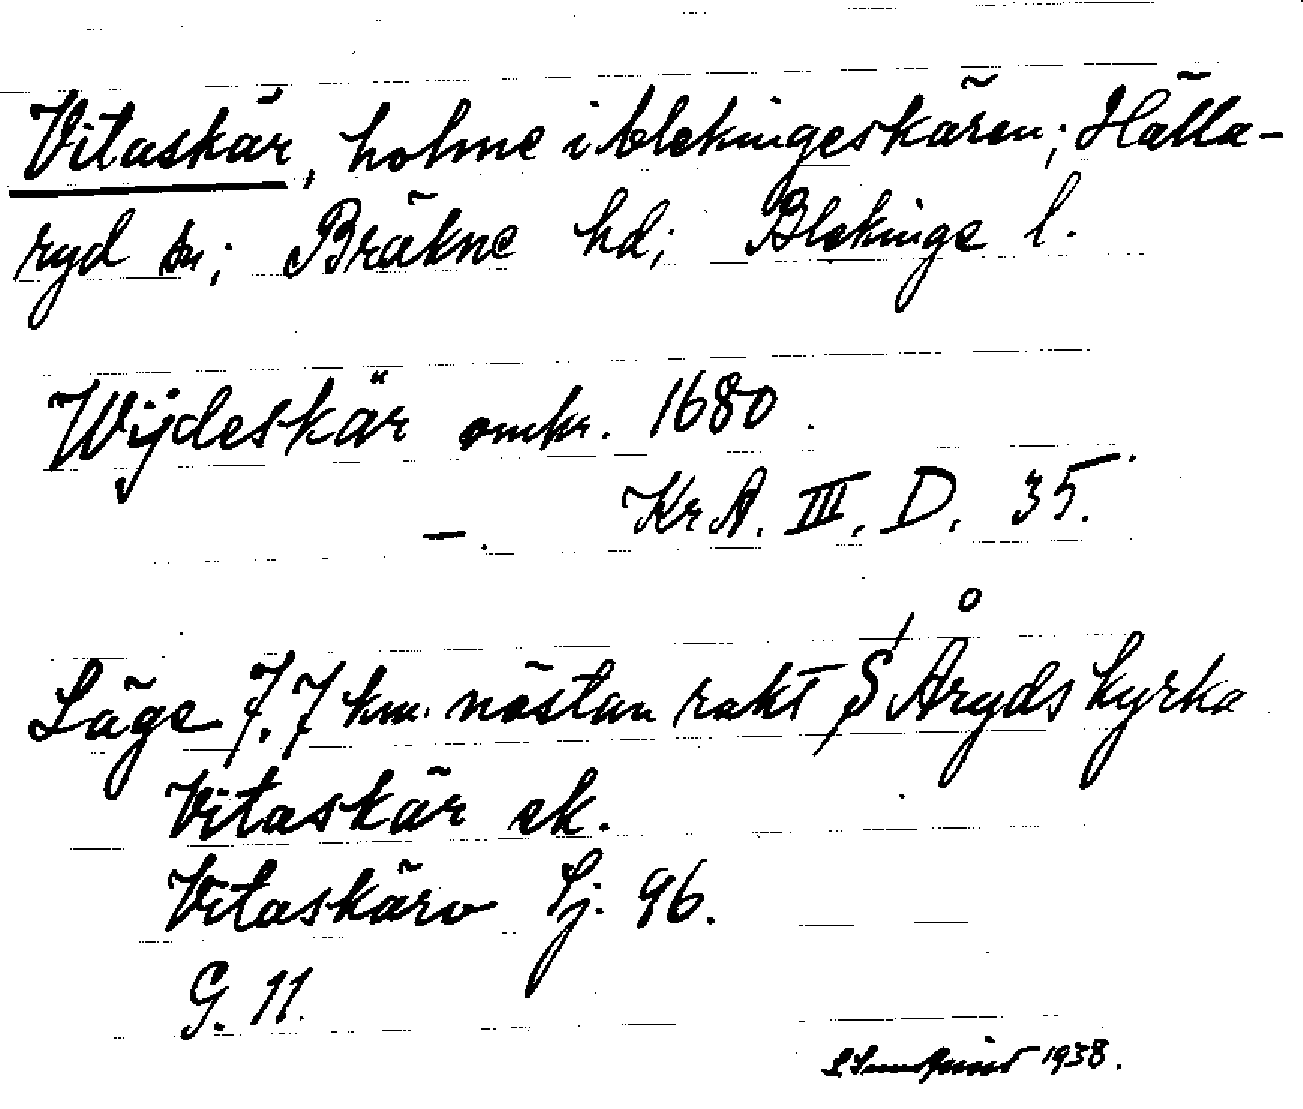 Vitaskär, holme i blekingeskären; Hälla-
ryd sn; Bräkne hd; Blekinge l.
Wijdeskär omkr. 1680.
—. KrA. III. D. 35.
Läge 7.7 km. nästan rakt S Åryds kyrka
Vitaskär ek.
Vitaskäro Sj. 96.
G. 11.
1938.